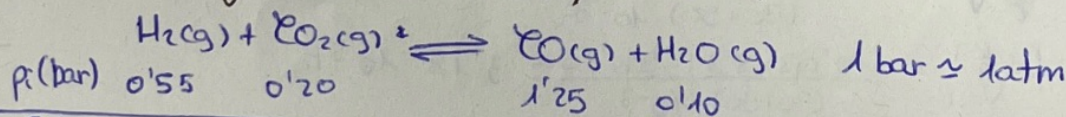 H₂(g) + CO₂(g) ⇌ CO(g) + H₂O(g) 1 bar ≃ 1atm
pi(bar) 0'55 0'20 1'25 0'10